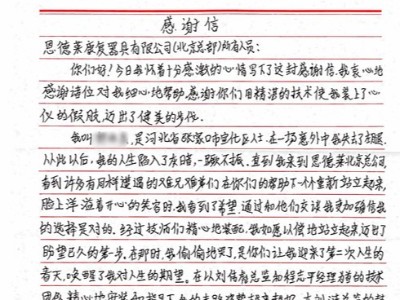 感谢信
恩德莱康复器具有限公司(北京总部)所有人员:
你们好!今日我怀着十分感激的心情写下了这封感谢信,我衷心地
感谢诸位对我细心地帮助,感谢你们用精湛的技术使我装上了心
仪的假肢,迈出了健美的步伐。
我叫 是河北省张家口市宣化区人士,在一场意外中我失去了右腿,
从此以后,我的人生陷入了灰暗,一蹶不振,直到我来到恩德莱北京总公司
看到许多有同样遭遇的难兄难弟们在你们的帮助下一个个重新站立起来,
脸上洋溢着开心的笑容时,我看到了希望,通过和他们交谈我更加确信我
的选择是对的。经过技师们精心地装配,我如愿以偿地站立起来,迈出了
盼望已久的第一步。在那时,我偷偷地哭了,是你们让我迎来了第二次人生的
春天,唤醒了我对人生的期望。在以刘伟有总监和程志平经理为首的技术